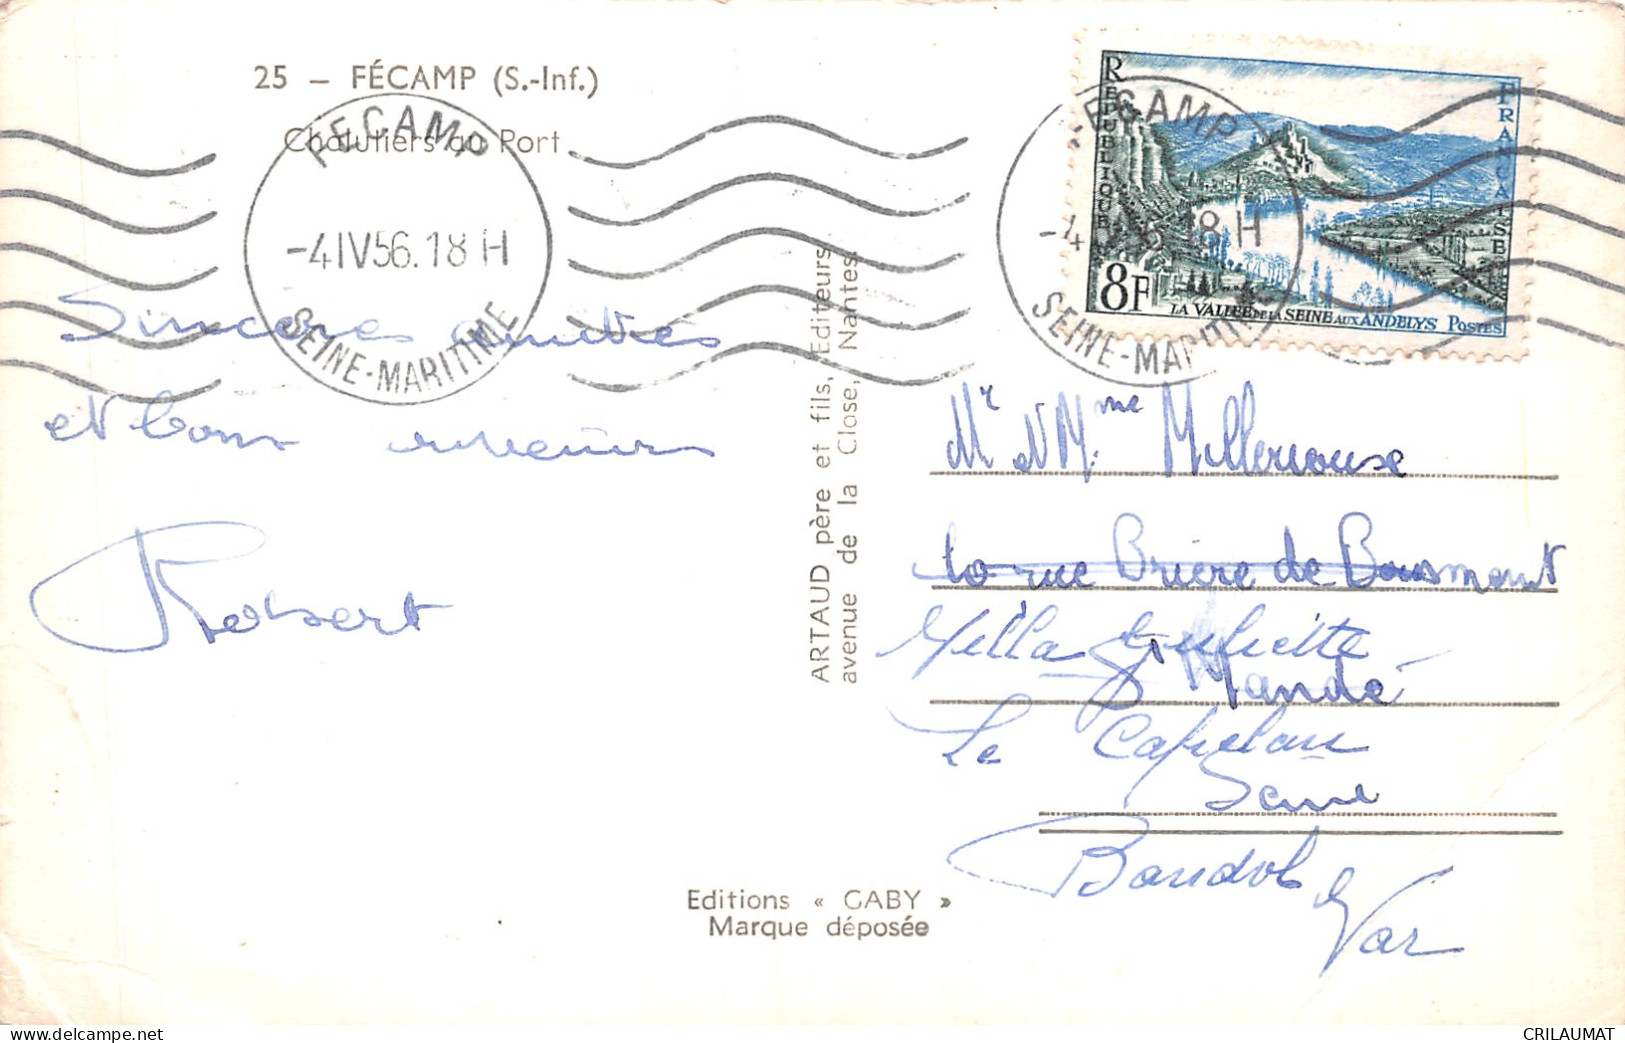 25 – FÉCAMP (S.-Inf.)
Chalutiers au Port
FECAMP
-4 IV 56. 18 H
SEINE-MARITIME
Sincères amitiés
et bons souvenirs
Robert
ARTAUD père et fils, Editeurs
avenue de la Close, Nantes
Editions « GABY »
Marque déposée
RÉPUBLIQUE FRANÇAISE
8F
LA VALLÉE DE LA SEINE AUX ANDELYS POSTES
FECAMP
-4 18 H
SEINE-MARITIME
Mr et Mme Millerioux
10 rue Brière de Boismont
Villa
Mandé
Le Capelan
Seine
Bandol
Var
www.delcampe.net
CRILAUMAT